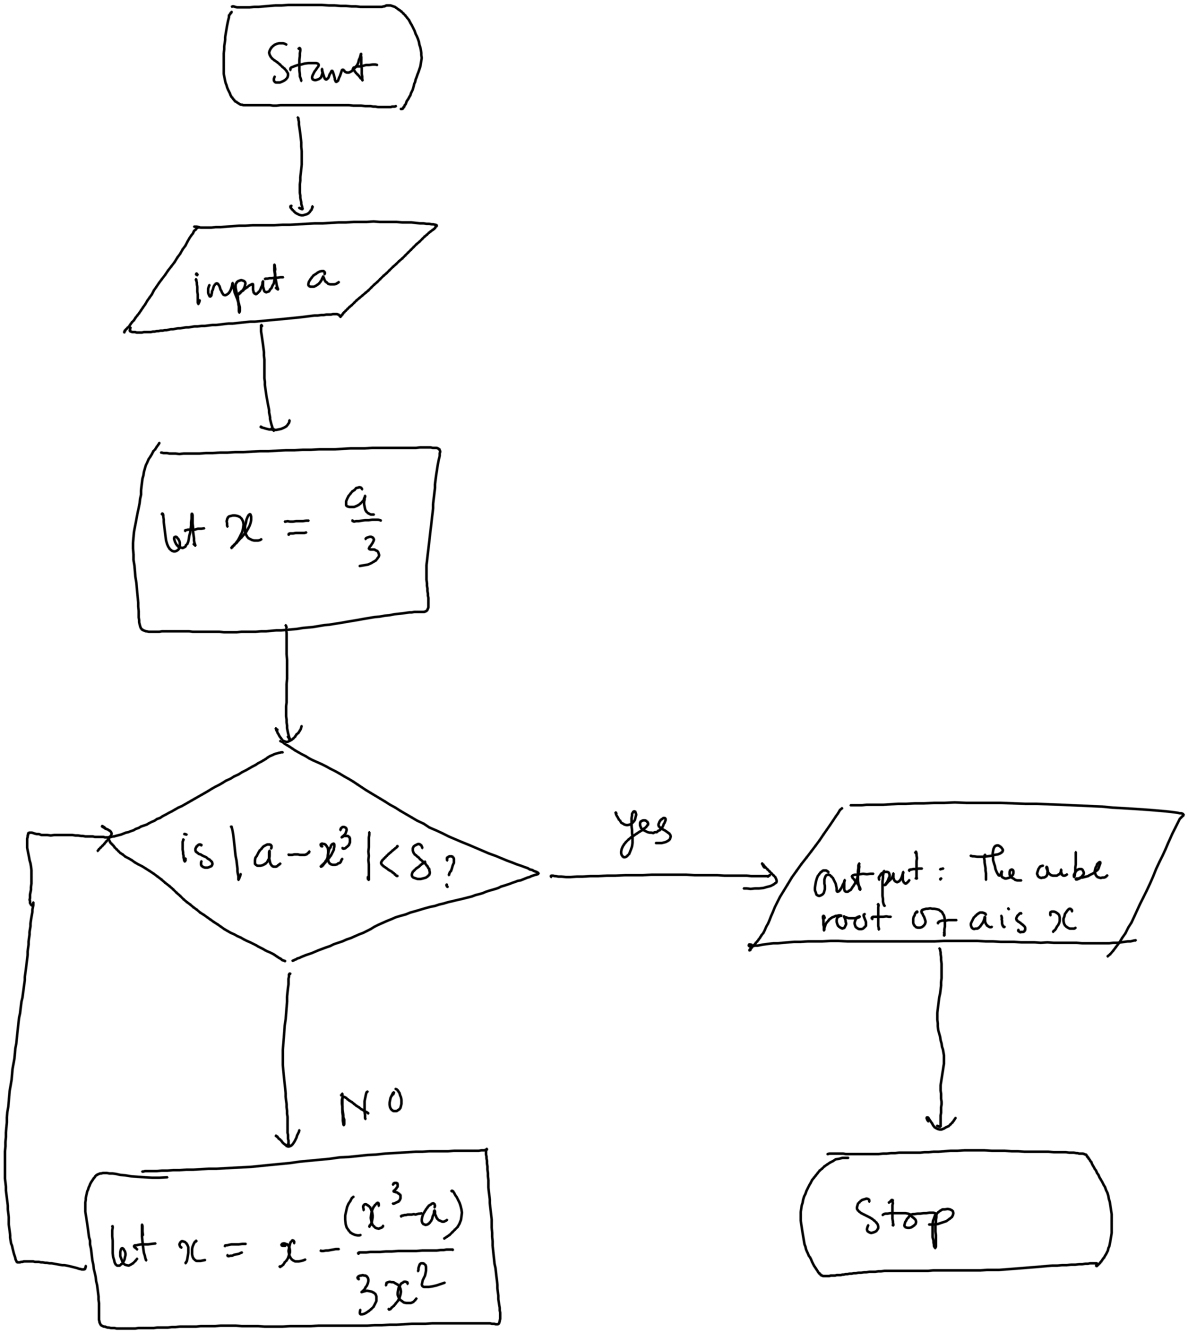 Start
input a
let x = a/3
is |a-x³|<δ?
yes
output: The cube
root of a is x
NO
let x = x - (x³-a)/3x²
Stop